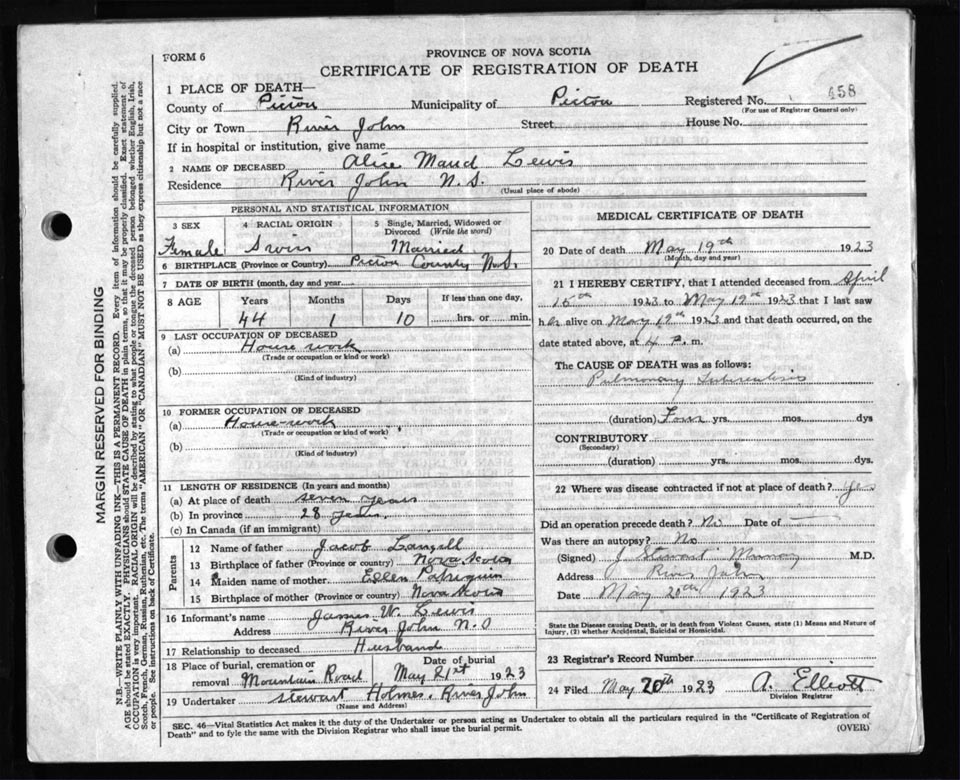 FORM 6
PROVINCE OF NOVA SCOTIA
CERTIFICATE OF REGISTRATION OF DEATH
1 PLACE OF DEATH—
County of Pictou Municipality of Pictou Registered No. 458
(For use of Registrar General only)
City or Town River John Street House No.
If in hospital or institution, give name
2 NAME OF DECEASED Alice Maud Lewis
Residence River John N.S.
(Usual place of abode)
PERSONAL AND STATISTICAL INFORMATION
3 SEX
Female
4 RACIAL ORIGIN
Swiss
5 Single, Married, Widowed or
Divorced (Write the word)
Married
6 BIRTHPLACE (Province or Country) Pictou County N.S.
7 DATE OF BIRTH (month, day and year)
8 AGE Years Months Days If less than one day,
44 1 10 hrs. or min.
9 LAST OCCUPATION OF DECEASED
(a) House work
(Trade or occupation or kind or work)
(b)
(Kind of industry)
10 FORMER OCCUPATION OF DECEASED
(a) House-work
(Trade or occupation or kind of work)
(b)
(Kind of industry)
11 LENGTH OF RESIDENCE (In years and months)
(a) At place of death seven years
(b) In province 28 years
(c) In Canada (if an immigrant)
Parents
12 Name of father Jacob Langill
13 Birthplace of father (Province or country) Nova Scotia
14 Maiden name of mother Ellen Patriquin
15 Birthplace of mother (Province or country) Nova Scotia
16 Informant's name James W. Lewis
Address River John N.S
17 Relationship to deceased Husband
18 Place of burial, cremation or
removal Mountain Road
Date of burial
May 21st 1923
19 Undertaker Stewart Holmes. River John
(Name and Address)
MEDICAL CERTIFICATE OF DEATH
20 Date of death May 19th 1923
(Month, day and year)
21 I HEREBY CERTIFY, that I attended deceased from April
15th 1923 to May 19th 1923 that I last saw
her alive on May 19th 1923 and that death occurred, on the
date stated above, at 4 P. m.
The CAUSE OF DEATH was as follows:
Pulmonary Tuberculosis
(duration) Four yrs. mos. dys
CONTRIBUTORY
(Secondary)
(duration) yrs. mos. dys.
22 Where was disease contracted if not at place of death? Yes
Did an operation precede death? No Date of —
Was there an autopsy? No
(Signed) J Stewart Murray M.D.
Address River John
Date May 20th 1923
State the Disease causing Death, or in death from Violent Causes, state (1) Means and Nature of
Injury, (2) whether Accidental, Suicidal or Homicidal.
23 Registrar's Record Number
24 Filed May 20th 1923 A. Elliott
Division Registrar
SEC. 46—Vital Statistics Act makes it the duty of the Undertaker or person acting as Undertaker to obtain all the particulars required in the "Certificate of Registration of
Death" and to fyle the same with the Division Registrar who shall issue the burial permit.
(OVER)
MARGIN RESERVED FOR BINDING
N.B.—WRITE PLAINLY WITH UNFADING INK—THIS IS A PERMANENT RECORD. Every item of information should be carefully supplied.
AGE should be stated EXACTLY. PHYSICIANS should STATE CAUSE OF DEATH in plain terms, so that it may be properly classified. Exact statement of
OCCUPATION is very important. RACIAL ORIGIN will be described by stating to what people or tongue the deceased person belonged whether English, Irish,
Scotch, French, German, Russian, Ruthenian, etc. The terms "AMERICAN" or "CANADIAN" MUST NOT BE USED as they express citizenship but not a race
or people. See instructions on back of Certificate.